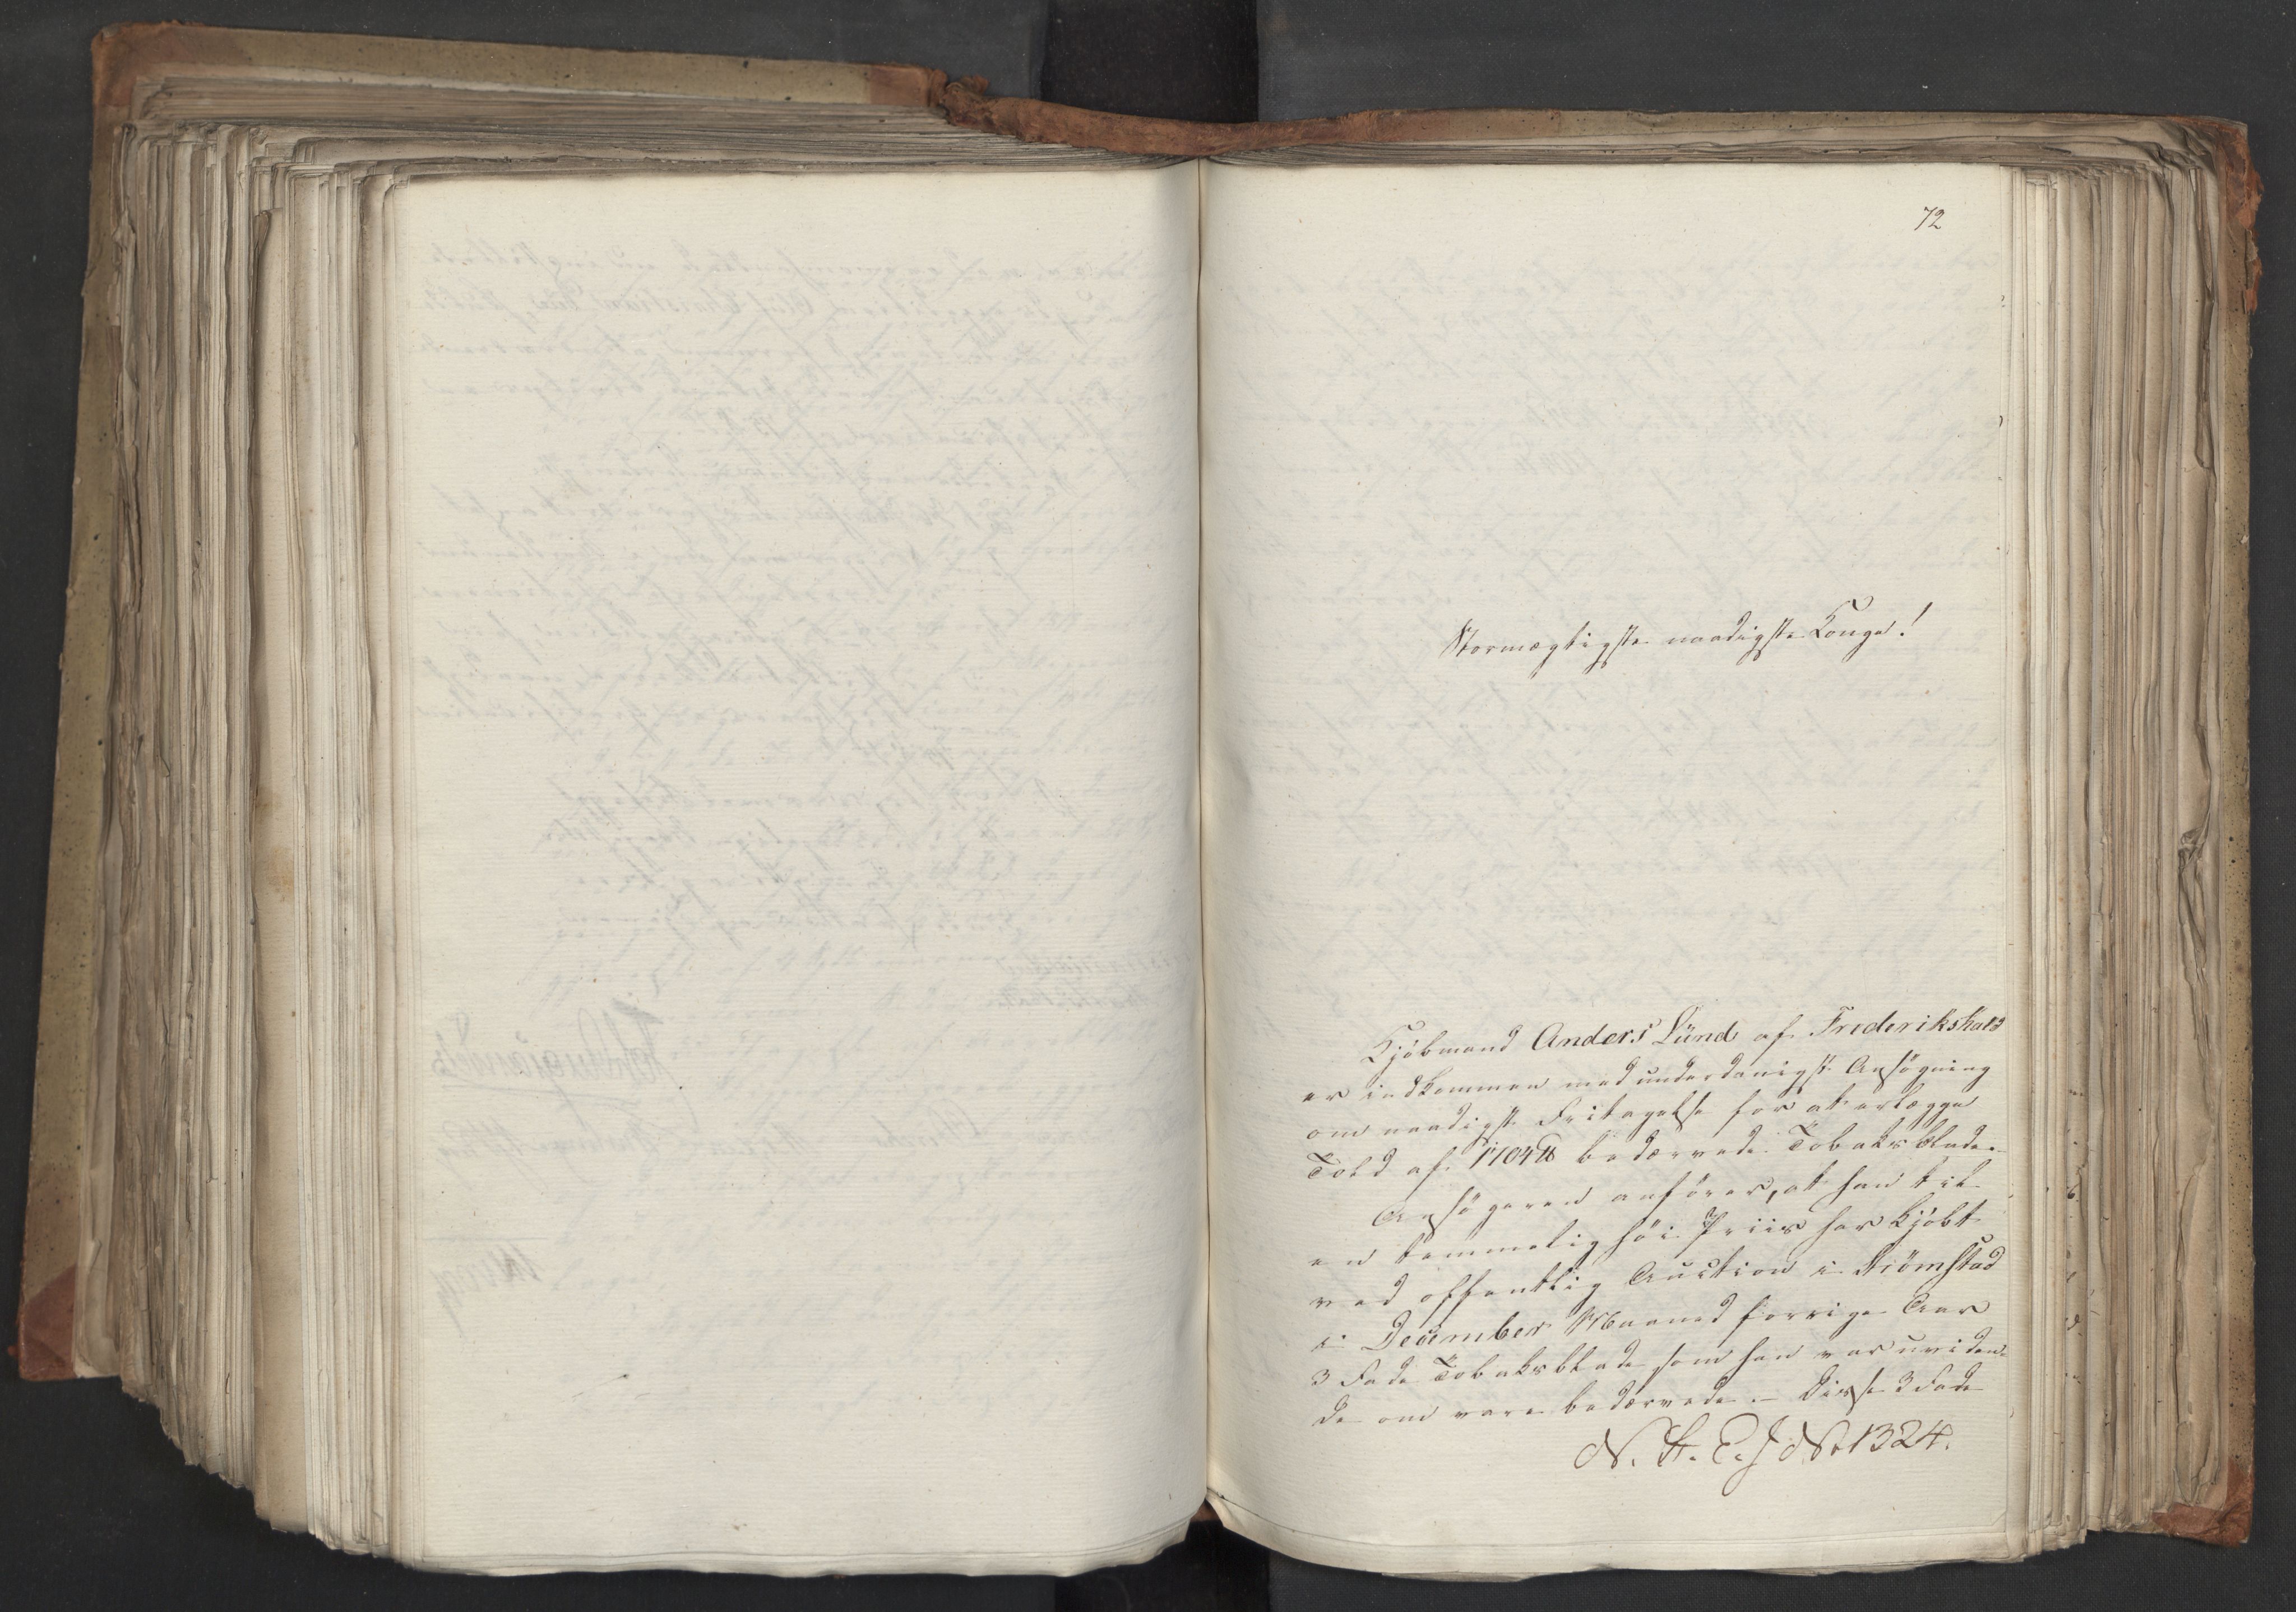 72
Stormægtigste naadigste Konge!
Kjöbmand Anders Lünd af Frederikshald
er indkommen med underdanigst Ansögning
om naadigst Fritagelse for at erlægge
Told af 1704 ℔ bedærvede Tobaksblade.
Ansögeren anförer, at han til
en temmelig höi Priis har kjöbt
ved offentlig Auction i Strömstad
i December Maaned forrige Aar
3 Fade Tobaksblade som han var uviden-
de om vare bedærvede. – Disse 3 Fade
N. St. E. J No 1324.